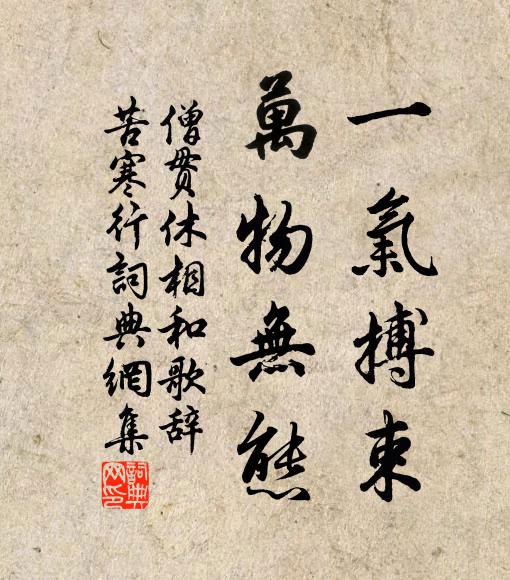 一氣搏束
萬物無態
僧貫休相和歌辞
苦寒行詞典網集
詞典網印